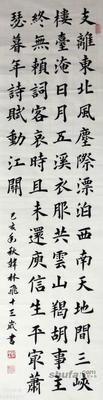 支離東北風塵際漂泊西南天地間三峽
樓臺淹日月五溪衣服共雲山羯胡事主
終無賴詞客哀時且未還庾信生平㝡蕭
瑟暮年詩賦動江關
己亥秋林飛十三歲書